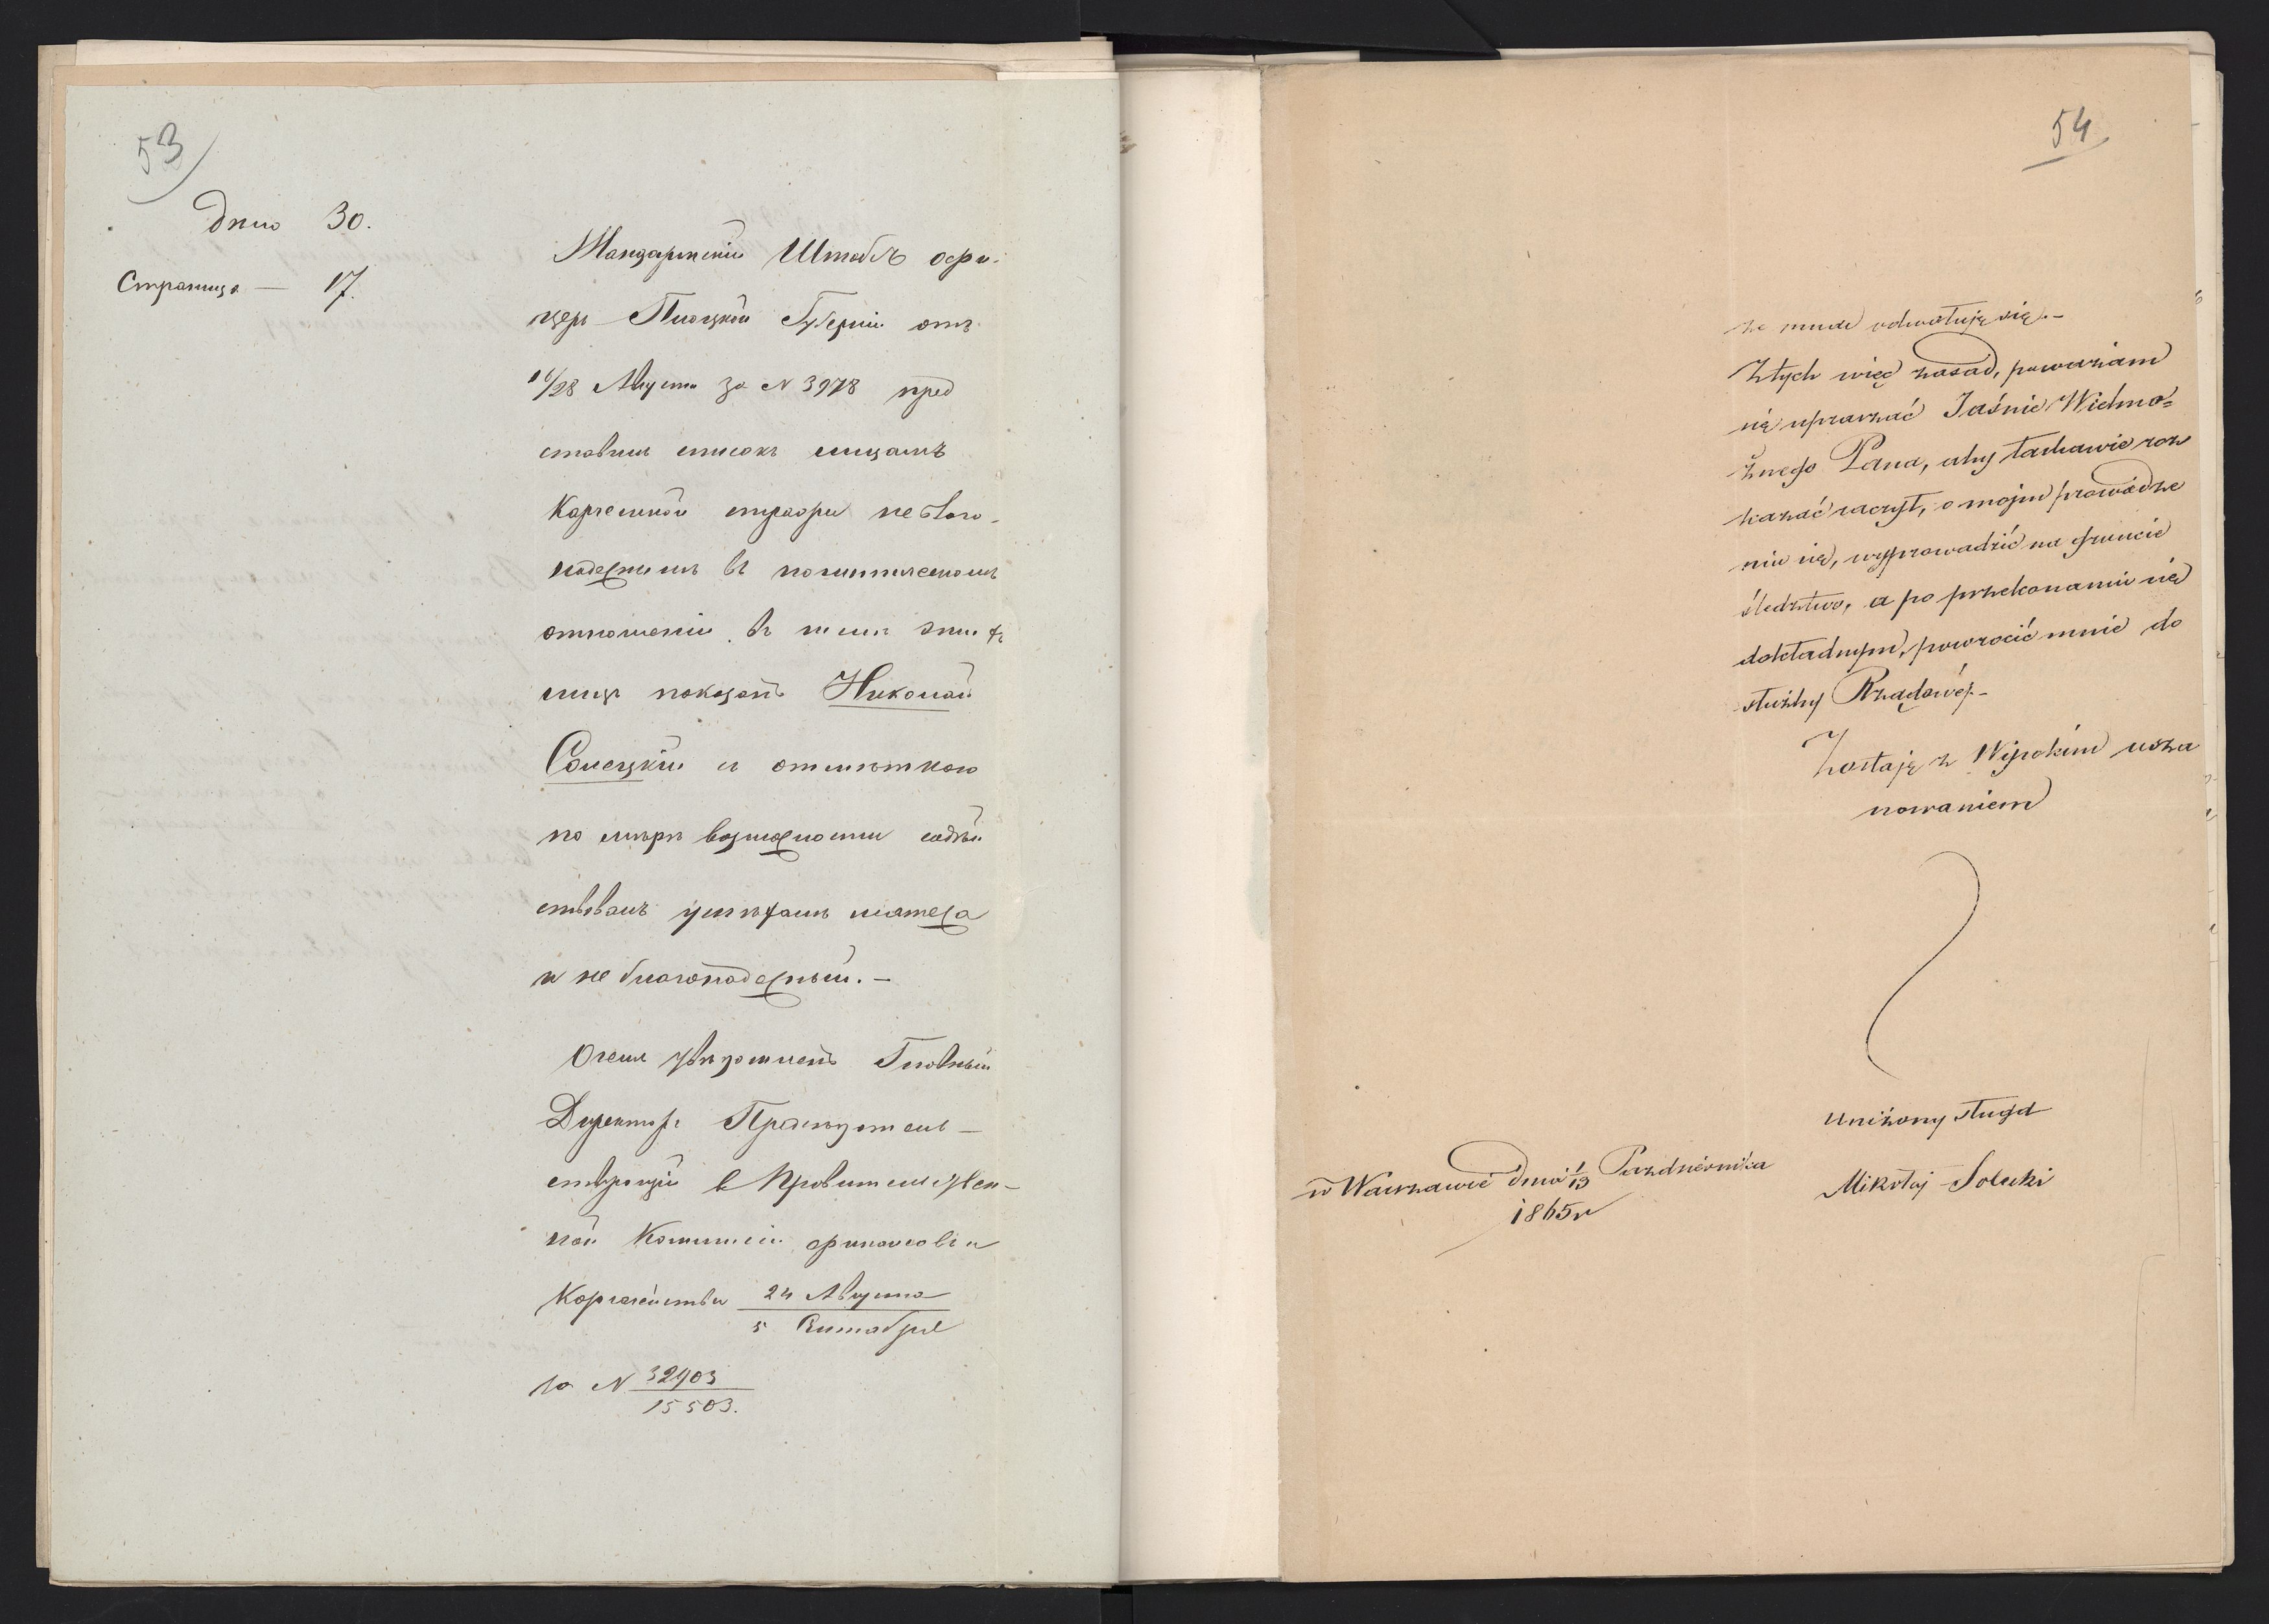 53
Дѣло 30.
Страница — 17.
Жандармскій Штабъ офи-
церъ Плоцкой Губерніи отъ
16/28 Августа за N 3978 пред
ставилъ списокъ лицамъ
Корчемной стражи неблаго-
надежнымъ въ политическомъ
отношеніи. въ числѣ этихъ
лицъ показанъ Николай
Солецкій съ отмѣткою
по мѣрѣ возможности содѣй
ствовалъ успѣхамъ мятежа
и не благонадежный.—
О чемъ увѣдомленъ Главный
Директоръ Предсѣдатель-
ствующій в Правительствен-
ной Коммисіи финансовъ и
Казначейства 24 Августа
5 Сентября
за N 32903
15503.
54
że mnie odwołuję się.-
Z tych więc zasad, poważam
się upraszać Jaśnie Wielmo=
żnego Pana, aby łaskawie roz
kazać raczył, o mojm prowadze
niu się, wyprowadzić na gruncie
śledztwo, a po przekonaniu się
dokładnym, powrócić mnie do
służby Rządowéj.-
Zostaję z Wysokim usza
nowaniem
Uniżony sługa
w Warszawie dnia 1/13 Pazdziernika
1865 r
Mikołaj Solecki